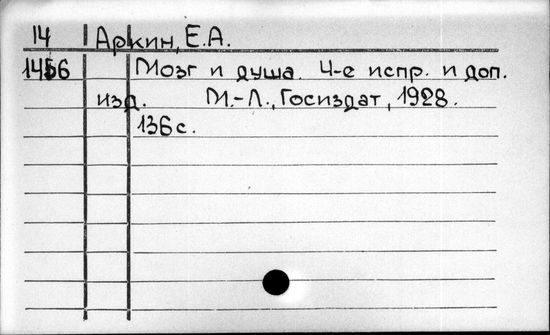 14 Аркин, Е.А.
1456 Мозг и душа. 4-е испр. и доп.
изд. М.-Л., Госиздат, 1928.
136 с.